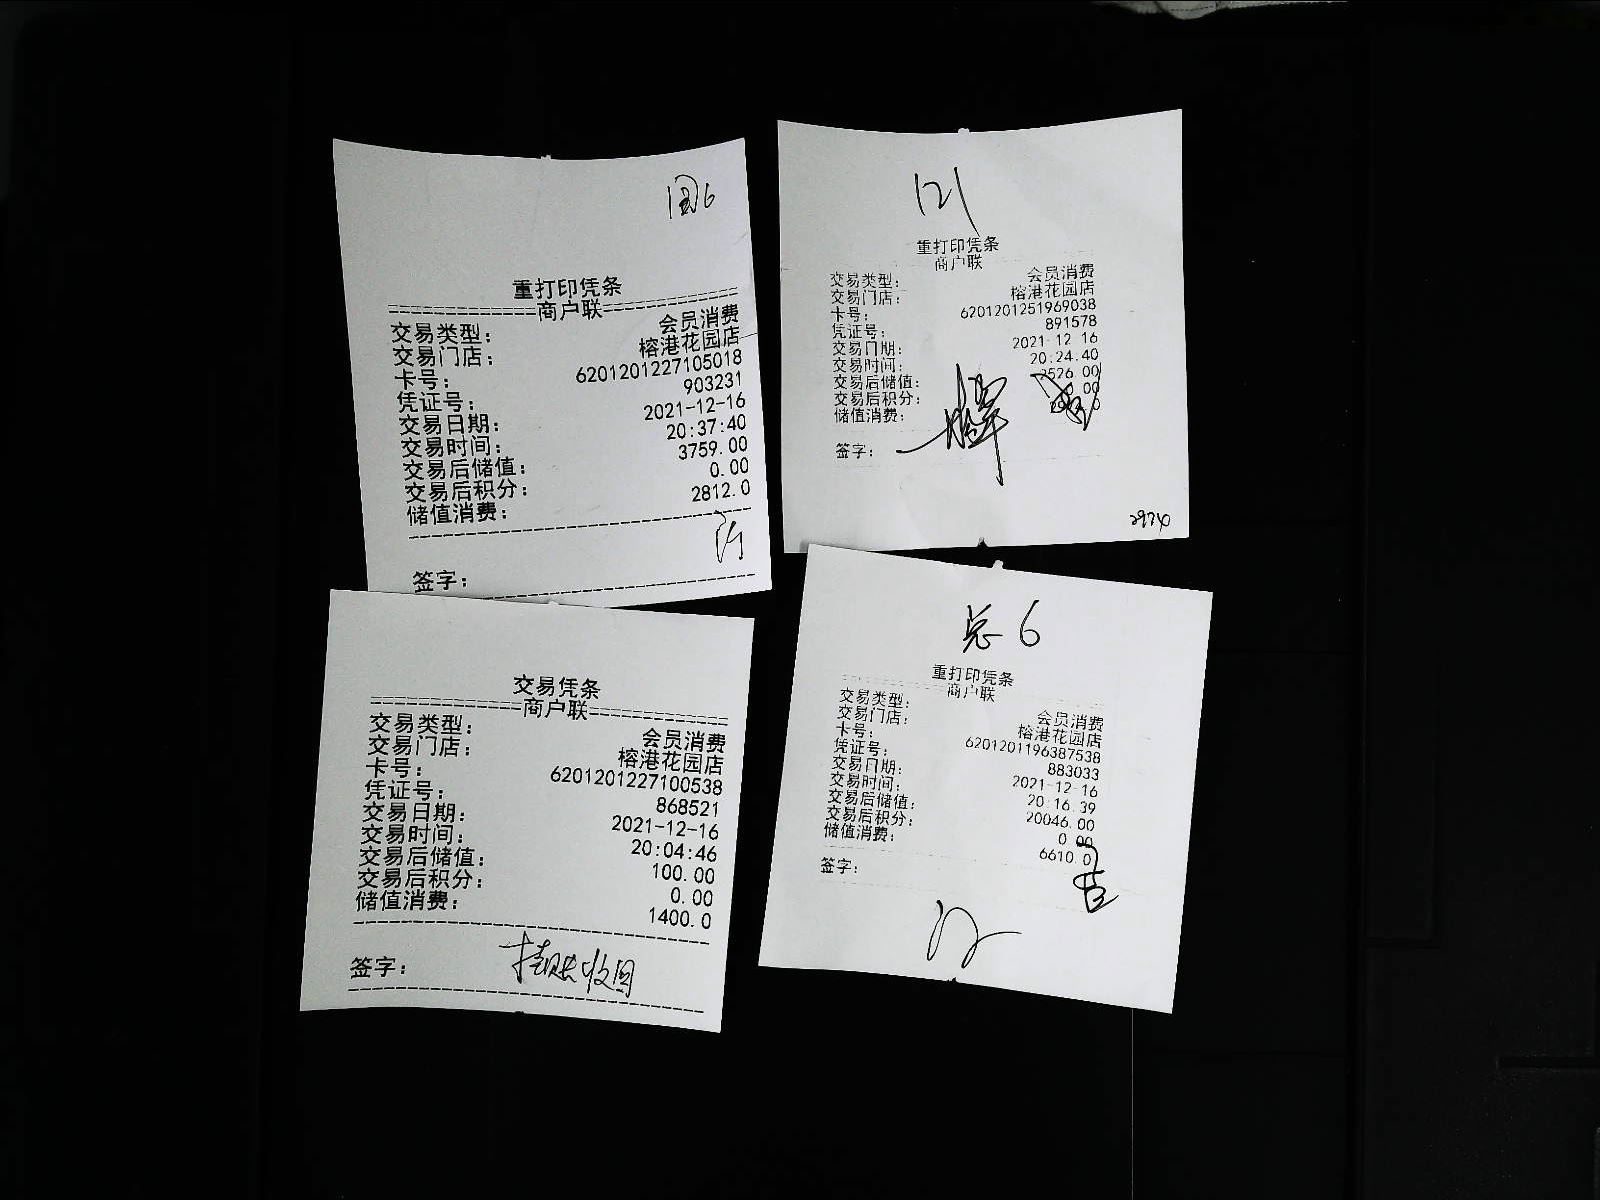 国6
重打印凭条
商户联
交易类型: 会员消费
交易门店: 榕港花园店
卡号: 6201201227105018
凭证号: 903231
交易日期: 2021-12-16
交易时间: 20:37:40
交易后储值: 3759.00
交易后积分: 0.00
储值消费: 2812.0
签字:
121
重打印凭条
商户联
交易类型: 会员消费
交易门店: 榕港花园店
卡号: 6201201251969038
凭证号: 891578
交易日期: 2021-12-16
交易时间: 20:24:40
交易后储值: 2526.00
交易后积分: 0.00
储值消费:
签字:
2974
交易凭条
商户联
交易类型: 会员消费
交易门店: 榕港花园店
卡号: 6201201227100538
凭证号: 868521
交易日期: 2021-12-16
交易时间: 20:04:46
交易后储值: 100.00
交易后积分: 0.00
储值消费: 1400.0
签字: 挂账收回
总6
重打印凭条
商户联
交易类型: 会员消费
交易门店: 榕港花园店
卡号: 6201201196387538
凭证号: 883033
交易日期: 2021-12-16
交易时间: 20:16:39
交易后储值: 20046.00
交易后积分: 0.00
储值消费: 6610.0
签字: